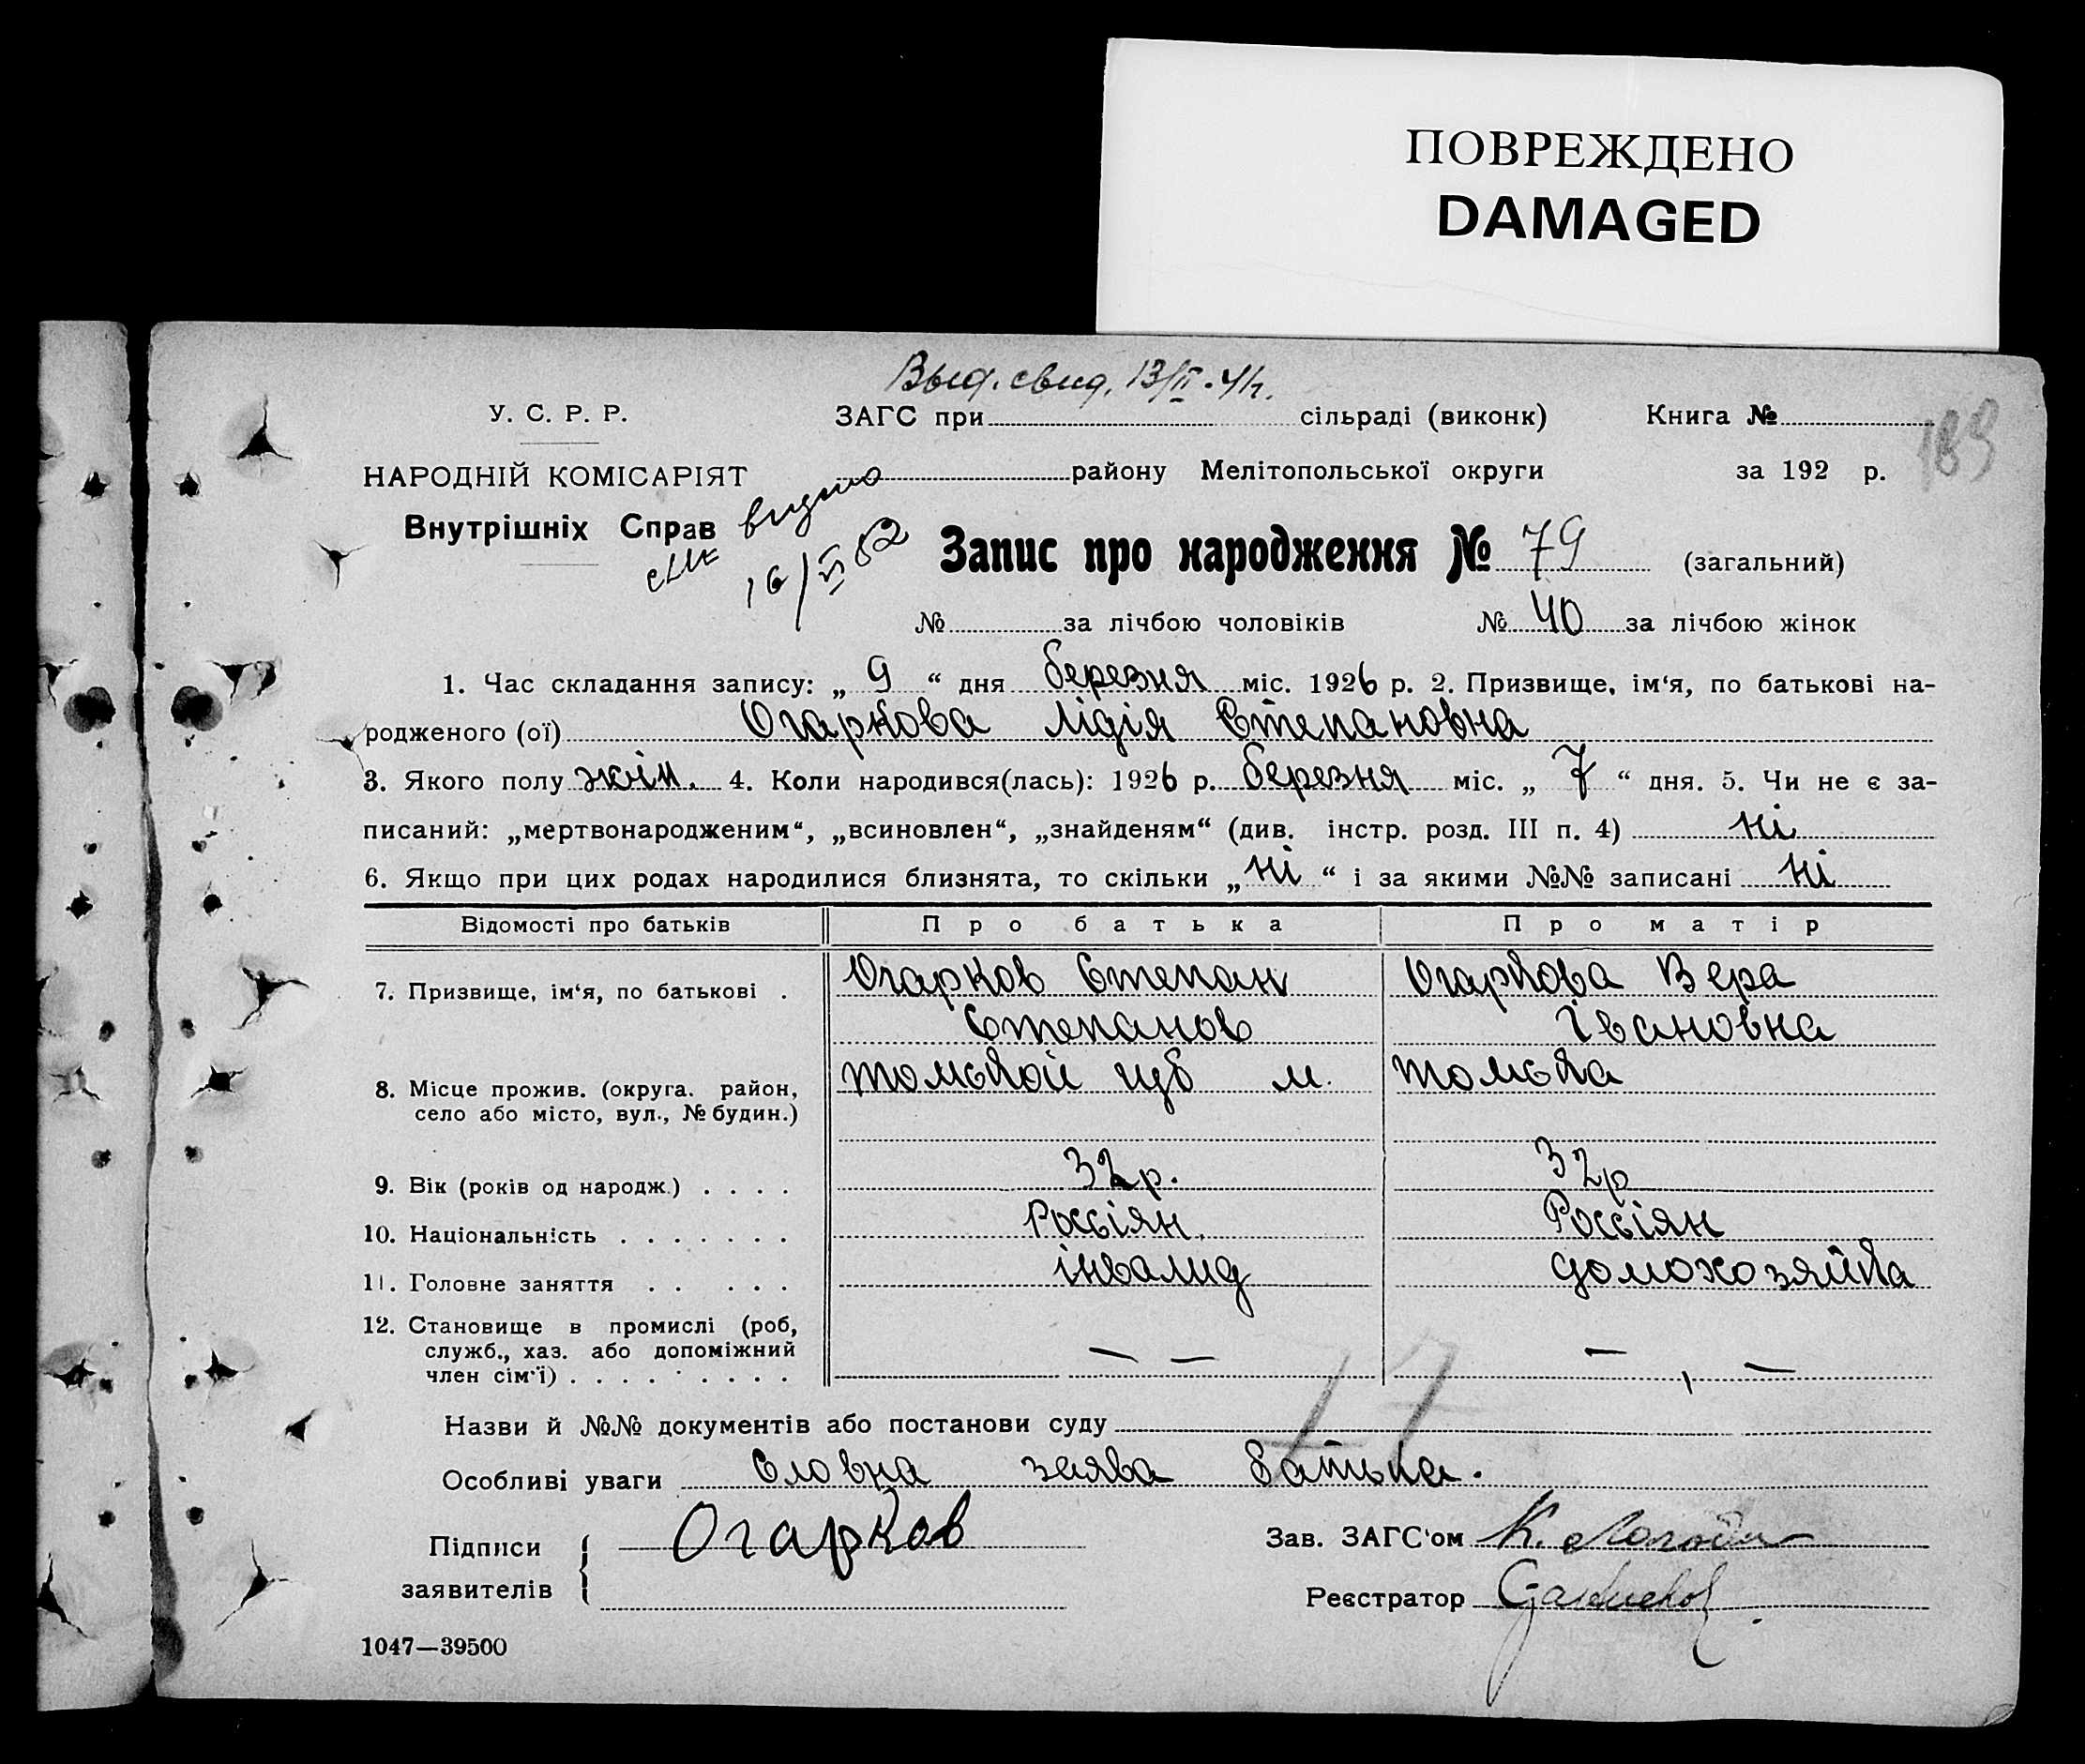 ПОВРЕЖДЕНО
DAMAGED
Выд. свид. 13/II-41г.
У. С. Р. Р. ЗАГС при сільраді (виконк) Книга №
189
НАРОДНІЙ КОМІСАРІЯТ району Мелітопольської округи за 192 р.
Внутрішніх Справ
видано
16/VI 62
Запис про народження № 79 (загальний)
№ за лічбою чоловіків № 40 за лічбою жінок
1. Час складання запису: „ 9 “ дня березня міс. 1926 р. 2. Призвище, ім‘я, по батькові на-
родженого (ої) Огаркова Лідія Степановна
3. Якого полу жін. 4. Коли народився(лась): 1926 р. березня міс. „ 7 “ дня. 5. Чи не є за-
писаний: „мертвонародженим“, „всиновлен“, „знайденям“ (див. інстр. розд. III п. 4) ні
6. Якщо при цих родах народилися близнята, то скільки „ ні “ і за якими №№ записані ні
Відомості про батьків Про батька Про матір
7. Призвище, ім‘я, по батькові . Огарков Степан Огаркова Вера
Степанов Івановна
8. Місце прожив. (округа. район, томской м. томска
село або місто, вул., № будин.)
9. Вік (років од народж.) . . . . 32р. 32р
10. Національність . . . . . . . Россіян. Россіян
11. Головне заняття . . . . . інвалид домохозяйка
12. Становище в промислі (роб, — — — —
служб., хаз. або допоміжний
член сім‘ї) . . . . . . . . .
77
Назви й №№ документів або постанови суду
Особливі уваги Словна заява батька.
Підписи Огарков Зав. ЗАГС‘ом К.
заявителів Реєстратор
1047—39500